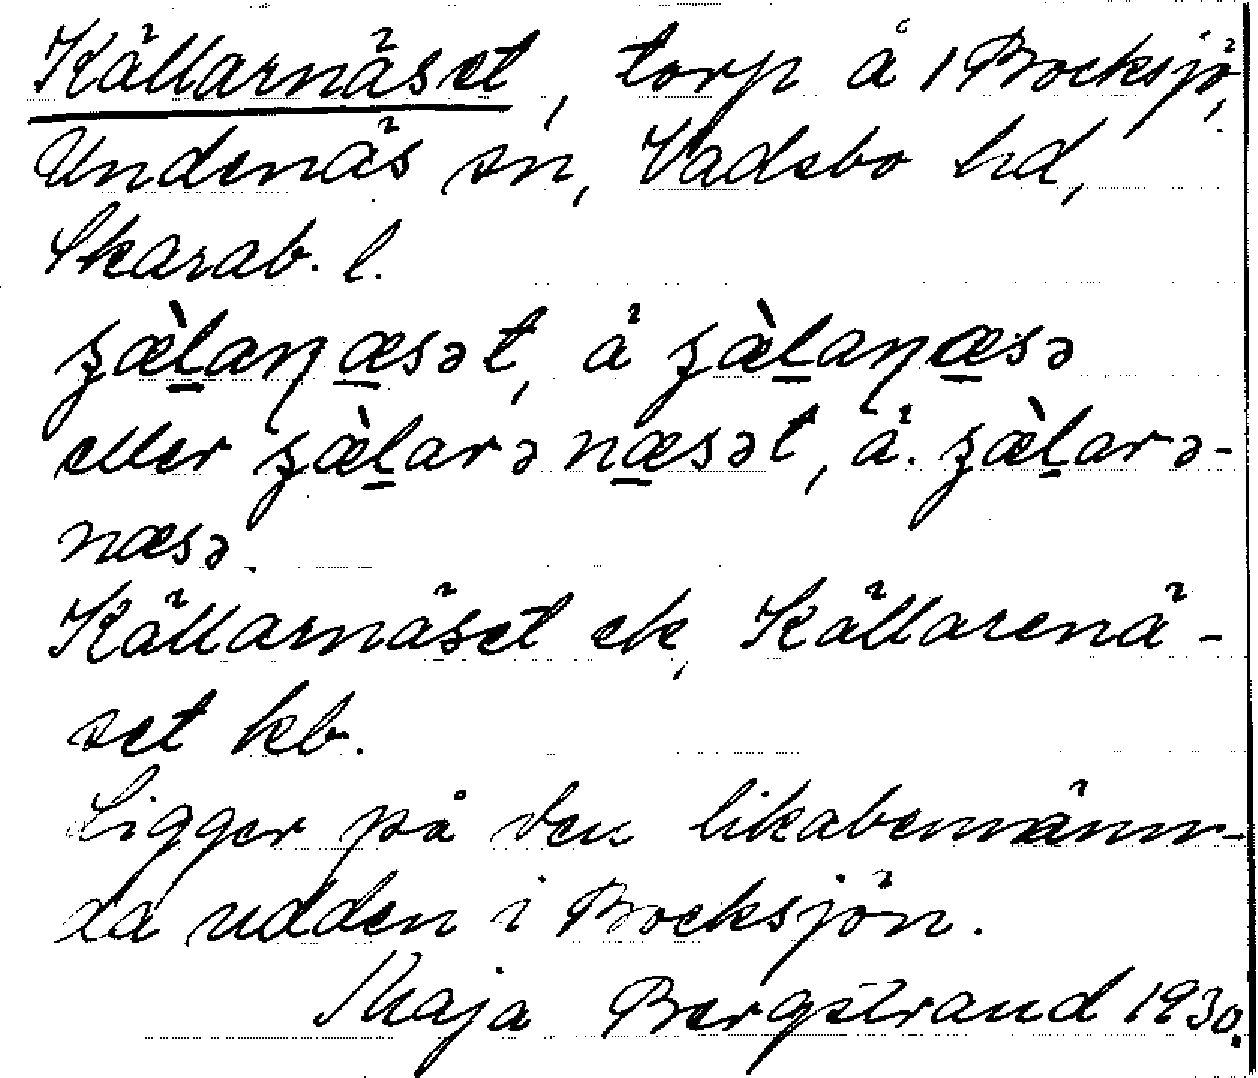 Källarnäset, torp å 1 Bocksjö,
Undenäs sn, Vadsbo hd,
Skarab. l.
ʒæ̀l̠aɳæ̠sət, å ʒæ̀l̠aɳæ̠sə
eller ʒæ̀l̠arənæ̠sət, å. ʒæ̀l̠arə-
næsə.
Källarnäset ek, Källarenä-
set kb.
Ligger på den likabenämn-
da udden i Bocksjön.
Maja Bergstrand 1930.